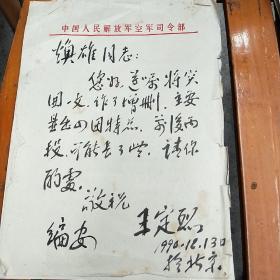 中国人民解放军空军司令部
焕雄同志：
您好，遵嘱将突
围一文，作了增删，主要
是 特点，前后两
段，可能长了些，请你
酌处。
敬祝
编安
王定烈
1990.12.13日
于北京